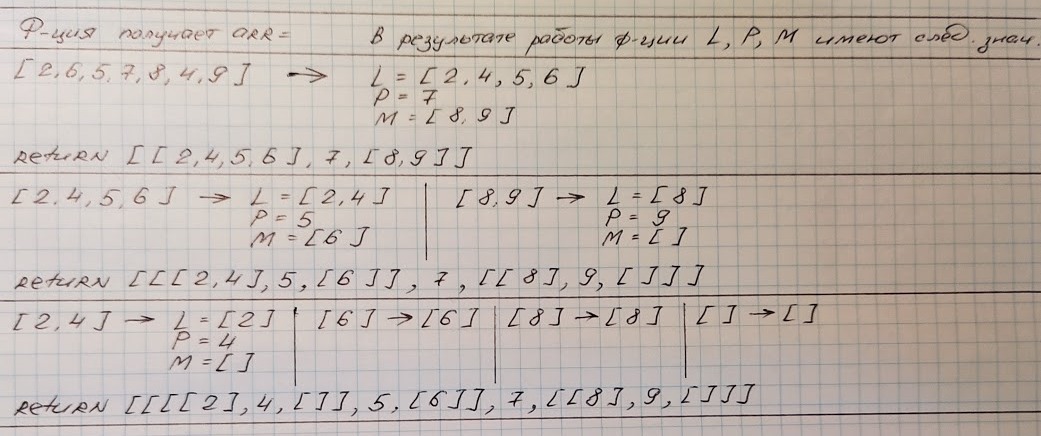 Ф-ция получает ARR = В результате работы ф-ции L, P, M имеют след. знач.
[2,6,5,7,8,4,9] → L = [2,4,5,6]
P = 7
M = [8,9]
return [[2,4,5,6],7,[8,9]]
[2,4,5,6] → L = [2,4] [8,9] → L = [8]
P = 5 P = 9
M = [6] M = []
return [[[2,4],5,[6]],7,[[8],9,[]]]
[2,4] → L = [2] [6] → [6] [8] → [8] [] → []
P = 4
M = []
return [[[[2],4,[]],5,[6]],7,[[8],9,[]]]